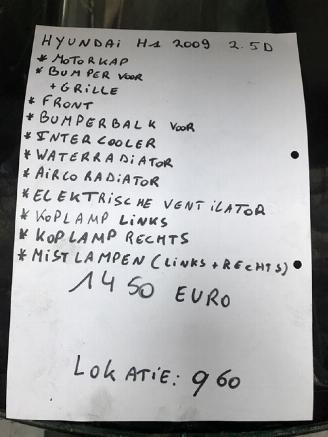 HYUNDAI H1 2009 2.5D
* MOTORKAP
* BUMPER VOOR
+ GRILLE
* FRONT
* BUMPERBALK VOOR
* INTERCOOLER
* WATERRADIATOR
* AIRCO RADIATOR
* ELEKTRISCHE VENTILATOR
* KOPLAMP LINKS
* KOPLAMP RECHTS
* MISTLAMPEN (LINKS + RECHTS)
1450 EURO
LOKATIE: 960